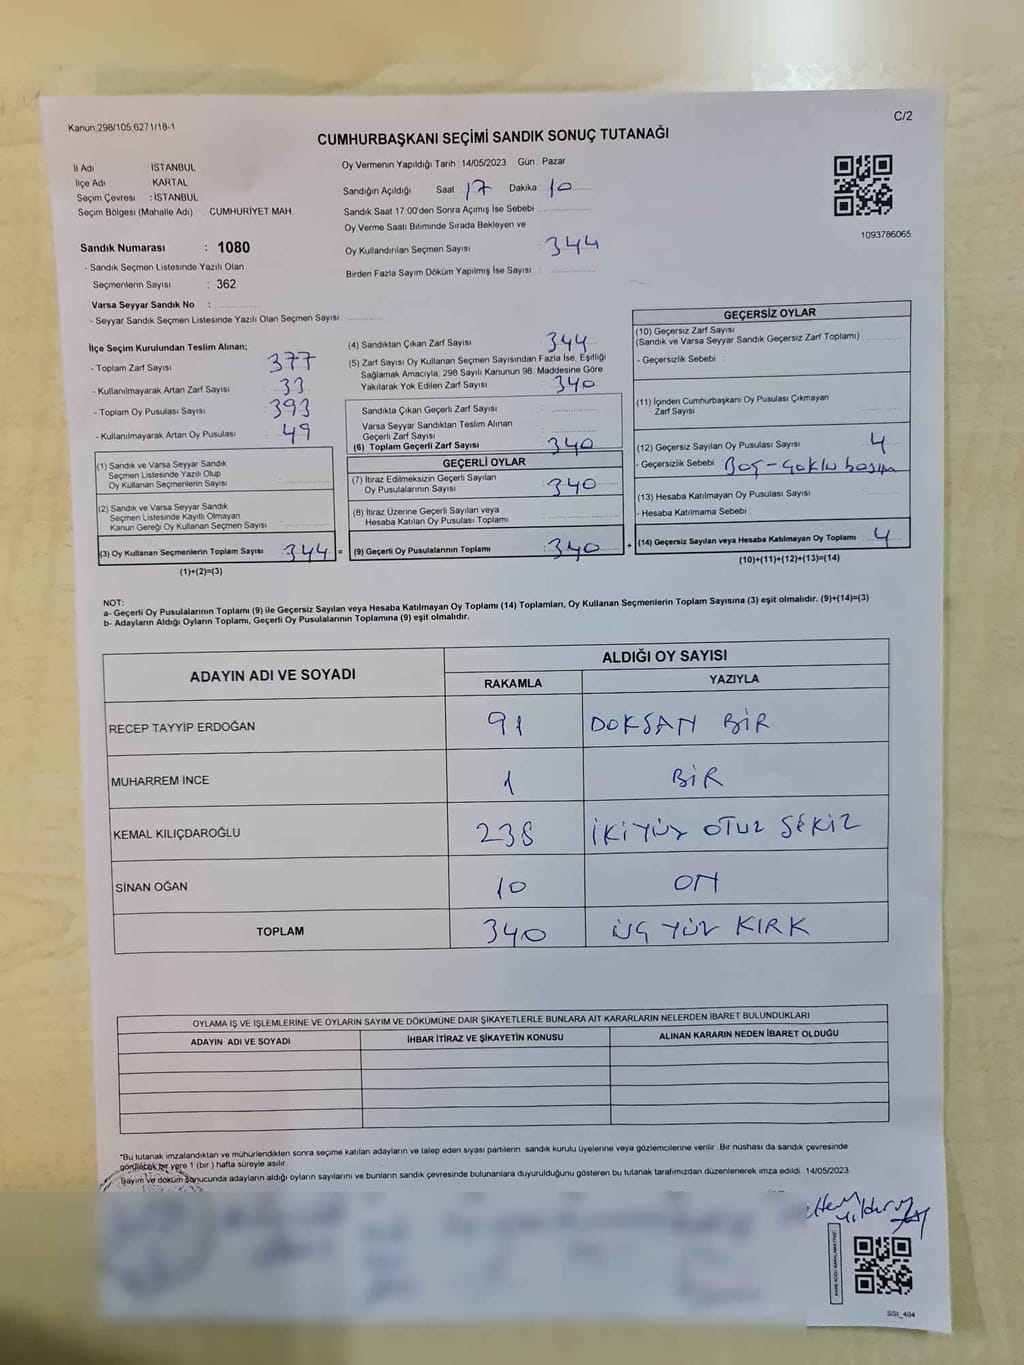 Kanun;298/105;6271/18-1
C/2
CUMHURBAŞKANI SEÇİMİ SANDIK SONUÇ TUTANAĞI
İl Adı İSTANBUL
İlçe Adı : KARTAL
Seçim Çevresi : İSTANBUL
Seçim Bölgesi (Mahalle Adı) : CUMHURİYET MAH.
Oy Vermenin Yapıldığı Tarih : 14/05/2023 Gün : Pazar
Sandığın Açıldığı Saat : 17 Dakika : 10
Sandık Saat 17.00'den Sonra Açımış İse Sebebi
Oy Verme Saati Bitiminde Sırada Bekleyen ve
Oy Kullandırılan Seçmen Sayısı : 344
Birden Fazla Sayım Döküm Yapılmış İse Sayısı :
1093786065
Sandık Numarası : 1080
- Sandık Seçmen Listesinde Yazılı Olan
Seçmenlerin Sayısı : 362
Varsa Seyyar Sandık No :
- Seyyar Sandık Seçmen Listesinde Yazılı Olan Seçmen Sayısı:
İlçe Seçim Kurulundan Teslim Alınan;
- Toplam Zarf Sayısı : 377
- Kullanılmayarak Artan Zarf Sayısı : 33
- Toplam Oy Pusulası Sayısı : 393
- Kullanılmayarak Artan Oy Pusulası : 49
(1) Sandık ve Varsa Seyyar Sandık
Seçmen Listesinde Yazılı Olup
Oy Kullanan Seçmenlerin Sayısı :
(2) Sandık ve Varsa Seyyar Sandık
Seçmen Listesinde Kayıtlı Olmayan
Kanun Gereği Oy Kullanan Seçmen Sayısı :
(3) Oy Kullanan Seçmenlerin Toplam Sayısı : 344 =
(1)+(2)=(3)
(4) Sandıktan Çıkan Zarf Sayısı : 344
(5) Zarf Sayısı Oy Kullanan Seçmen Sayısından Fazla İse, Eşitliği
Sağlamak Amacıyla; 298 Sayılı Kanunun 98. Maddesine Göre
Yakılarak Yok Edilen Zarf Sayısı : 340
Sandıkta Çıkan Geçerli Zarf Sayısı :
Varsa Seyyar Sandıktan Teslim Alınan
Geçerli Zarf Sayısı :
(6) Toplam Geçerli Zarf Sayısı : 340
GEÇERLİ OYLAR
(7) İtiraz Edilmeksizin Geçerli Sayılan
Oy Pusulalarının Sayısı : 340
(8) İtiraz Üzerine Geçerli Sayılan veya
Hesaba Katılan Oy Pusulası Toplamı :
(9) Geçerli Oy Pusulalarının Toplamı : 340 +
GEÇERSİZ OYLAR
(10) Geçersiz Zarf Sayısı
(Sandık ve Varsa Seyyar Sandık Geçersiz Zarf Toplamı) :
- Geçersizlik Sebebi :
(11) İçinden Cumhurbaşkanı Oy Pusulası Çıkmayan
Zarf Sayısı :
(12) Geçersiz Sayılan Oy Pusulası Sayısı : 4
- Geçersizlik Sebebi : Boş - Çoklu basım
(13) Hesaba Katılmayan Oy Pusulası Sayısı :
- Hesaba Katılmama Sebebi :
(14) Geçersiz Sayılan veya Hesaba Katılmayan Oy Toplamı : 4
(10)+(11)+(12)+(13)=(14)
NOT:
a- Geçerli Oy Pusulalarının Toplamı (9) ile Geçersiz Sayılan veya Hesaba Katılmayan Oy Toplamı (14) Toplamları, Oy Kullanan Seçmenlerin Toplam Sayısına (3) eşit olmalıdır. (9)+(14)=(3)
b- Adayların Aldığı Oyların Toplamı, Geçerli Oy Pusulalarının Toplamına (9) eşit olmalıdır.
ADAYIN ADI VE SOYADI
ALDIĞI OY SAYISI
RAKAMLA YAZIYLA
RECEP TAYYİP ERDOĞAN 91 DOKSAN BİR
MUHARREM İNCE 1 BİR
KEMAL KILIÇDAROĞLU 238 İKİYÜZ OTUZ SEKİZ
SİNAN OĞAN 10 ON
TOPLAM 340 ÜÇ YÜZ KIRK
OYLAMA İŞ VE İŞLEMLERİNE VE OYLARIN SAYIM VE DÖKÜMÜNE DAİR ŞİKAYETLERLE BUNLARA AİT KARARLARIN NELERDEN İBARET BULUNDUKLARI
ADAYIN ADI VE SOYADI İHBAR İTİRAZ VE ŞİKAYETİN KONUSU ALINAN KARARIN NEDEN İBARET OLDUĞU
*Bu tutanak imzalandıktan ve mühürlendikten sonra seçime katılan adayların ve talep eden siyasi partilerin sandık kurulu üyelerine veya gözlemcilerine verilir. Bir nüshası da sandık çevresinde
görülecek bir yere 1 (bir) hafta süreyle asılır.
Sayım ve döküm sonucunda adayların aldığı oyların sayılarını ve bunların sandık çevresinde bulunanlara duyurulduğunu gösteren bu tutanak tarafımızdan düzenlenerek imza edildi. 14/05/2023
SSI_404